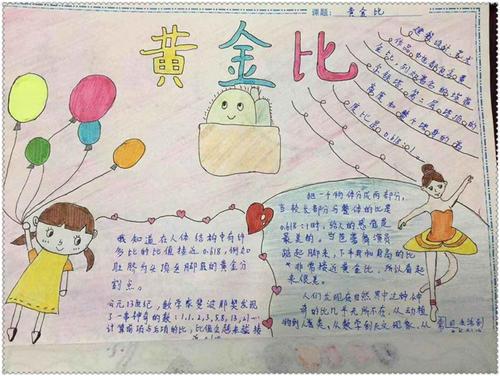 课题：黄金比
黄金比
建筑的艺术
作品的也都包含黄
金比，列
高度和整个塔身的高
度比是0.618:1。
我知道在人体结构中有许
多比的比值接近0.618，例如
肚脐为头顶至脚跟的黄金分
割点。
公元13世纪，数学家斐波那契发现
了一串神奇的数：1.1.2.3.5.8.13.21…
计算前项与后项的比，比值会越来越接
把一个物体分成两部分，
当较长部分与整体的比是
0.618:1时，给人的感觉是
最美的。当芭蕾舞演员
踮起脚尖，下半身和身高的比
非常接近黄金比，所以看起
来很美。
人们发现在自然界中这种神
奇的比几乎无所不在，从动植
物到人类，从数学到天文现象，从